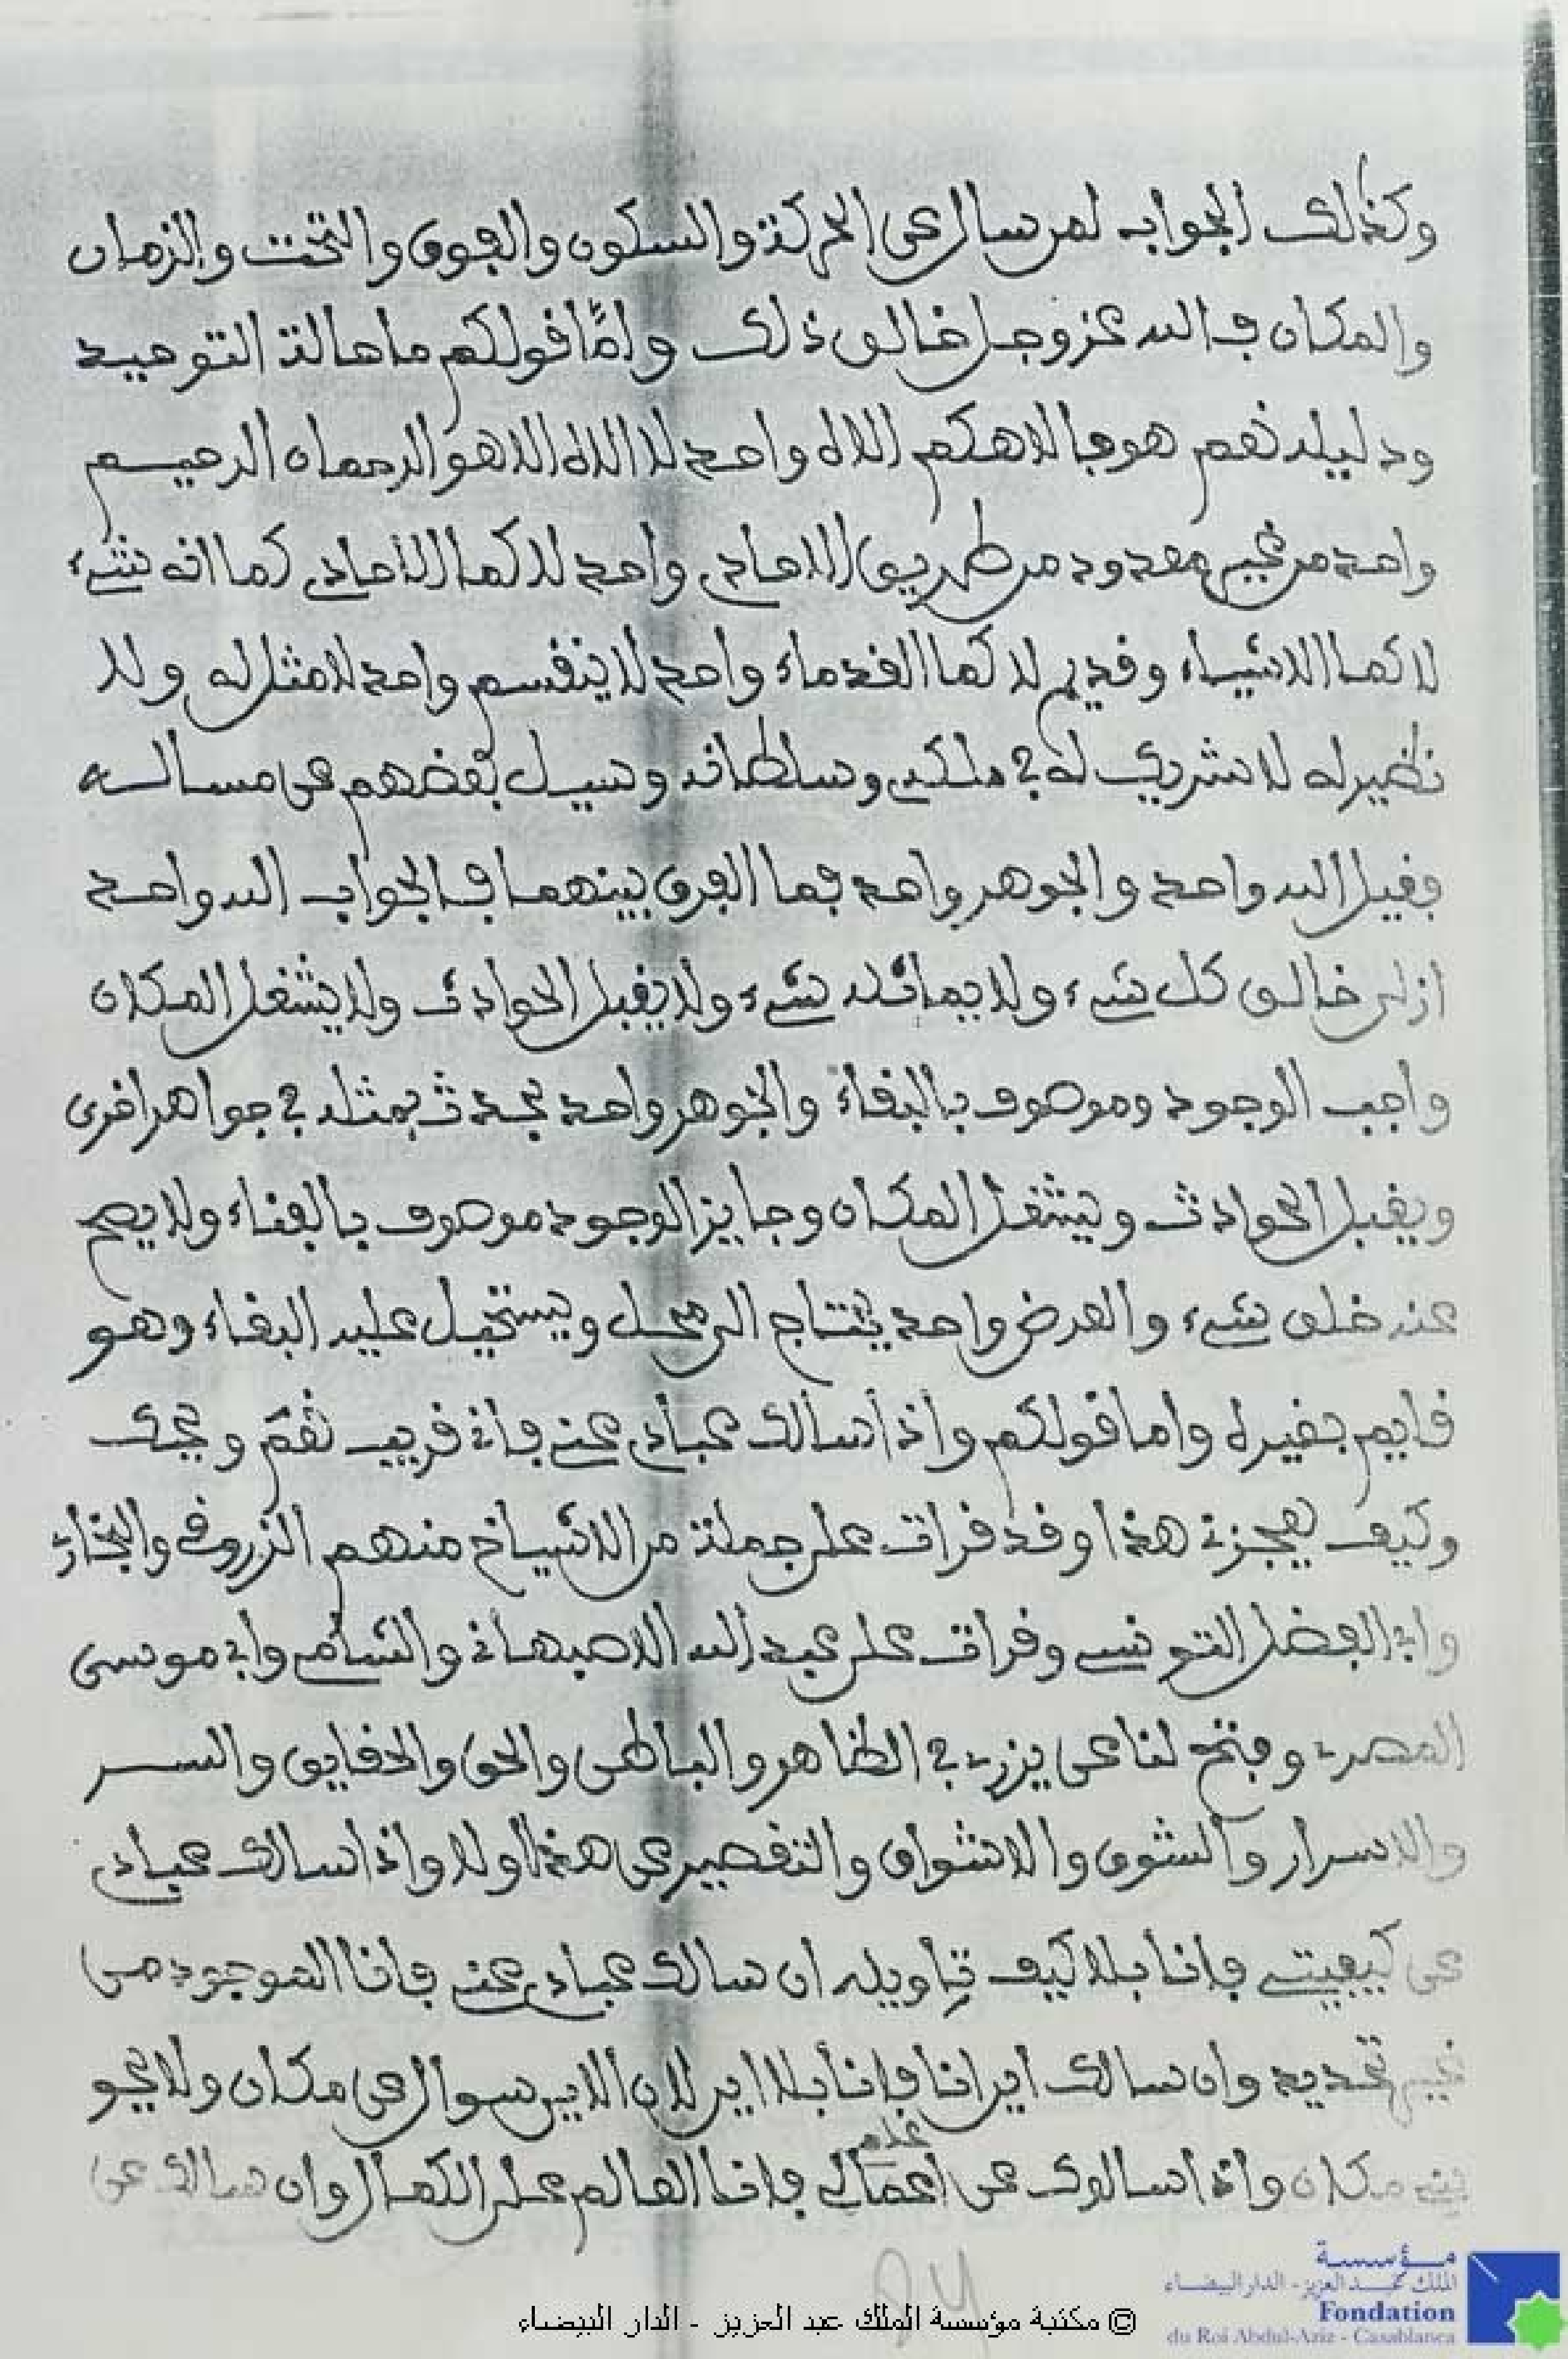 وكذلك الجواب لمن سال عن الحركة والسكون والفوق والتحت والزمان
والمكان فالله عز وجل خالق ذلك واما قولكم ما حالة التوحيد
ودليله نعم هو فالاهكم الاه واحد لا الاه الا هو الرحمان الرحيم
واحد من غير معدود من طريق الاحاد واحد لا كما الااحاد كما انه شيء
لا كما الاشياء وقديم لا كما القدماء واحد لا ينقسم واحد لا مثل له ولا
نظير له لا شريك له في ملكه وسلطانه وسيل بعضهم عن مسالـه
فقيل الله واحد والجوهر واحد فما الفرق بينهما فالجواب الله واحد
ازلى خالق كل شيء ولا يماثله شيء ولا يقبل الحوادث ولا يشغل المكان
واجب الوجود وموصوف بالبقاء والجوهر واحد يحدث بمثله في جواهر اخرى
ويقبل الحوادث ويشغل المكان وجايز الوجود موصوف بالفناء ولا يصح
عنه خلق شيء والعرض واحد يحتاج الى محل ويستحيل عليه البقاء وهو
قايم بغيره واما قولكم واذا سالك عبادي عني فاني قريب نعم ويحك
وكيف يعجزني هذا وقد قرات على جملة من الاشياخ منهم الزروفي والبخاري
وابي الفضل التونسي وقرات على عبد الله الاصبهاني والشامي وابي موسى
المصري وفتح لنا عن يزري في الظاهر والباطن والحق والحقايق والسـر
والاسرار والشوق والاشواق والتقصير عن هذا اولا واذا سالك عبادي
عن كيفيتي فانا بلا كيف تاويله ان سالك عبادي عني فانا الموجود من
غير تحديد وان سالك اين انا فانا بلا اين لان الاين سوال عن مكان ولا يحو
يني مكان واذا سالوك عن علم اعمالي فانا العالم على الكمال وان سالك عن
24
© مكتبة مؤسسة الملك عبد العزيز - الدار البيضاء
مؤسسة
الملك عبد العزيز - الدار البيضاء
Fondation
du Roi Abdul-Aziz - Casablanca